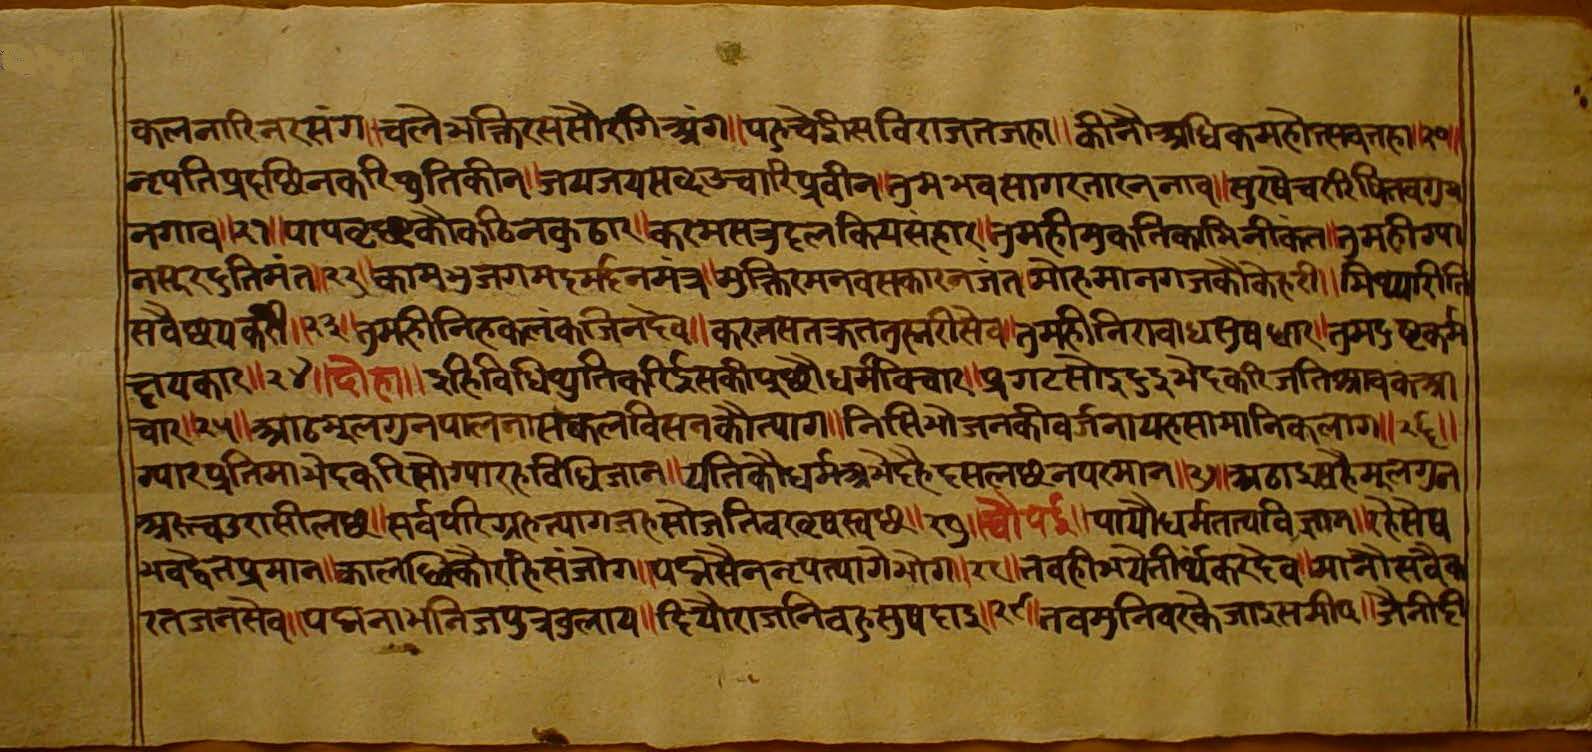 कलनारिनरसंग॥चलेभक्तिरससौरगिअंग॥पहुचेईसविराजतजहा॥कीनौअधिकमहोत्सवतहा॥२०॥
नृपतिप्रदछिनकरिथुतिकीन॥जयजयसब्दउचारिप्रवीन॥तुमभवसागरतारननाव॥सुरषेचर
नगाव॥२१॥पापवृछकौकठिनकुठार॥करमसत्रुदलकियसंहार॥तुमहीमुकतिकामिनीकंत॥तुमहीग्या
नसहरदुतिमंत॥२२॥कामभुजगमदमर्दनमंत्र॥मुक्तिरमनवसकारनजंत्र॥मोहमानगजकौकेहरी॥मिथ्यारीति
सवैछयकरी॥२३॥तुमहीनिहकलंकजिनदेव॥करतसतक्रततुम्हरीसेव॥तुमहीनिरावाधसुषधार॥तुमदुष्टकर्म
छयकार॥२४॥दोहा॥इहिविधिथुतिकरिईसकीपूछौधर्मविचार॥प्रगटसोइदुइभेदकरिजतिश्रावकआ
चार॥२५॥आठमूलगुनपालनासकलविसनकौत्याग॥निसिभोजनकीवर्जनायहसामानिकलाग॥२६॥
ग्यारप्रतिमाभेदकरिसोग्यारहविधिजान॥यतिकौधर्मअभेदहैदसलछनपरमान॥२७॥अठाइसहैमूलगुन
अरुचउरासीलछ॥सर्वपरिग्रहत्यागजहसोजतिवरवृषस्वछ॥२७॥चौपई॥पायौधर्मतत्वविज्ञान॥रहेसेष
भवद्वैतप्रमान॥कालछिकौरहिसंजोग॥पद्मसैननृपत्यागेभोग॥२८॥तवहीभयेतीर्थंकरदेव॥मानौसवैक
रतजनसेव॥पद्मनाभनिजपुत्रवुलाय॥दियौराजनिवहसुषदाइ॥२९॥तवमुनिवरकेजाइसमीप॥जैनीदी